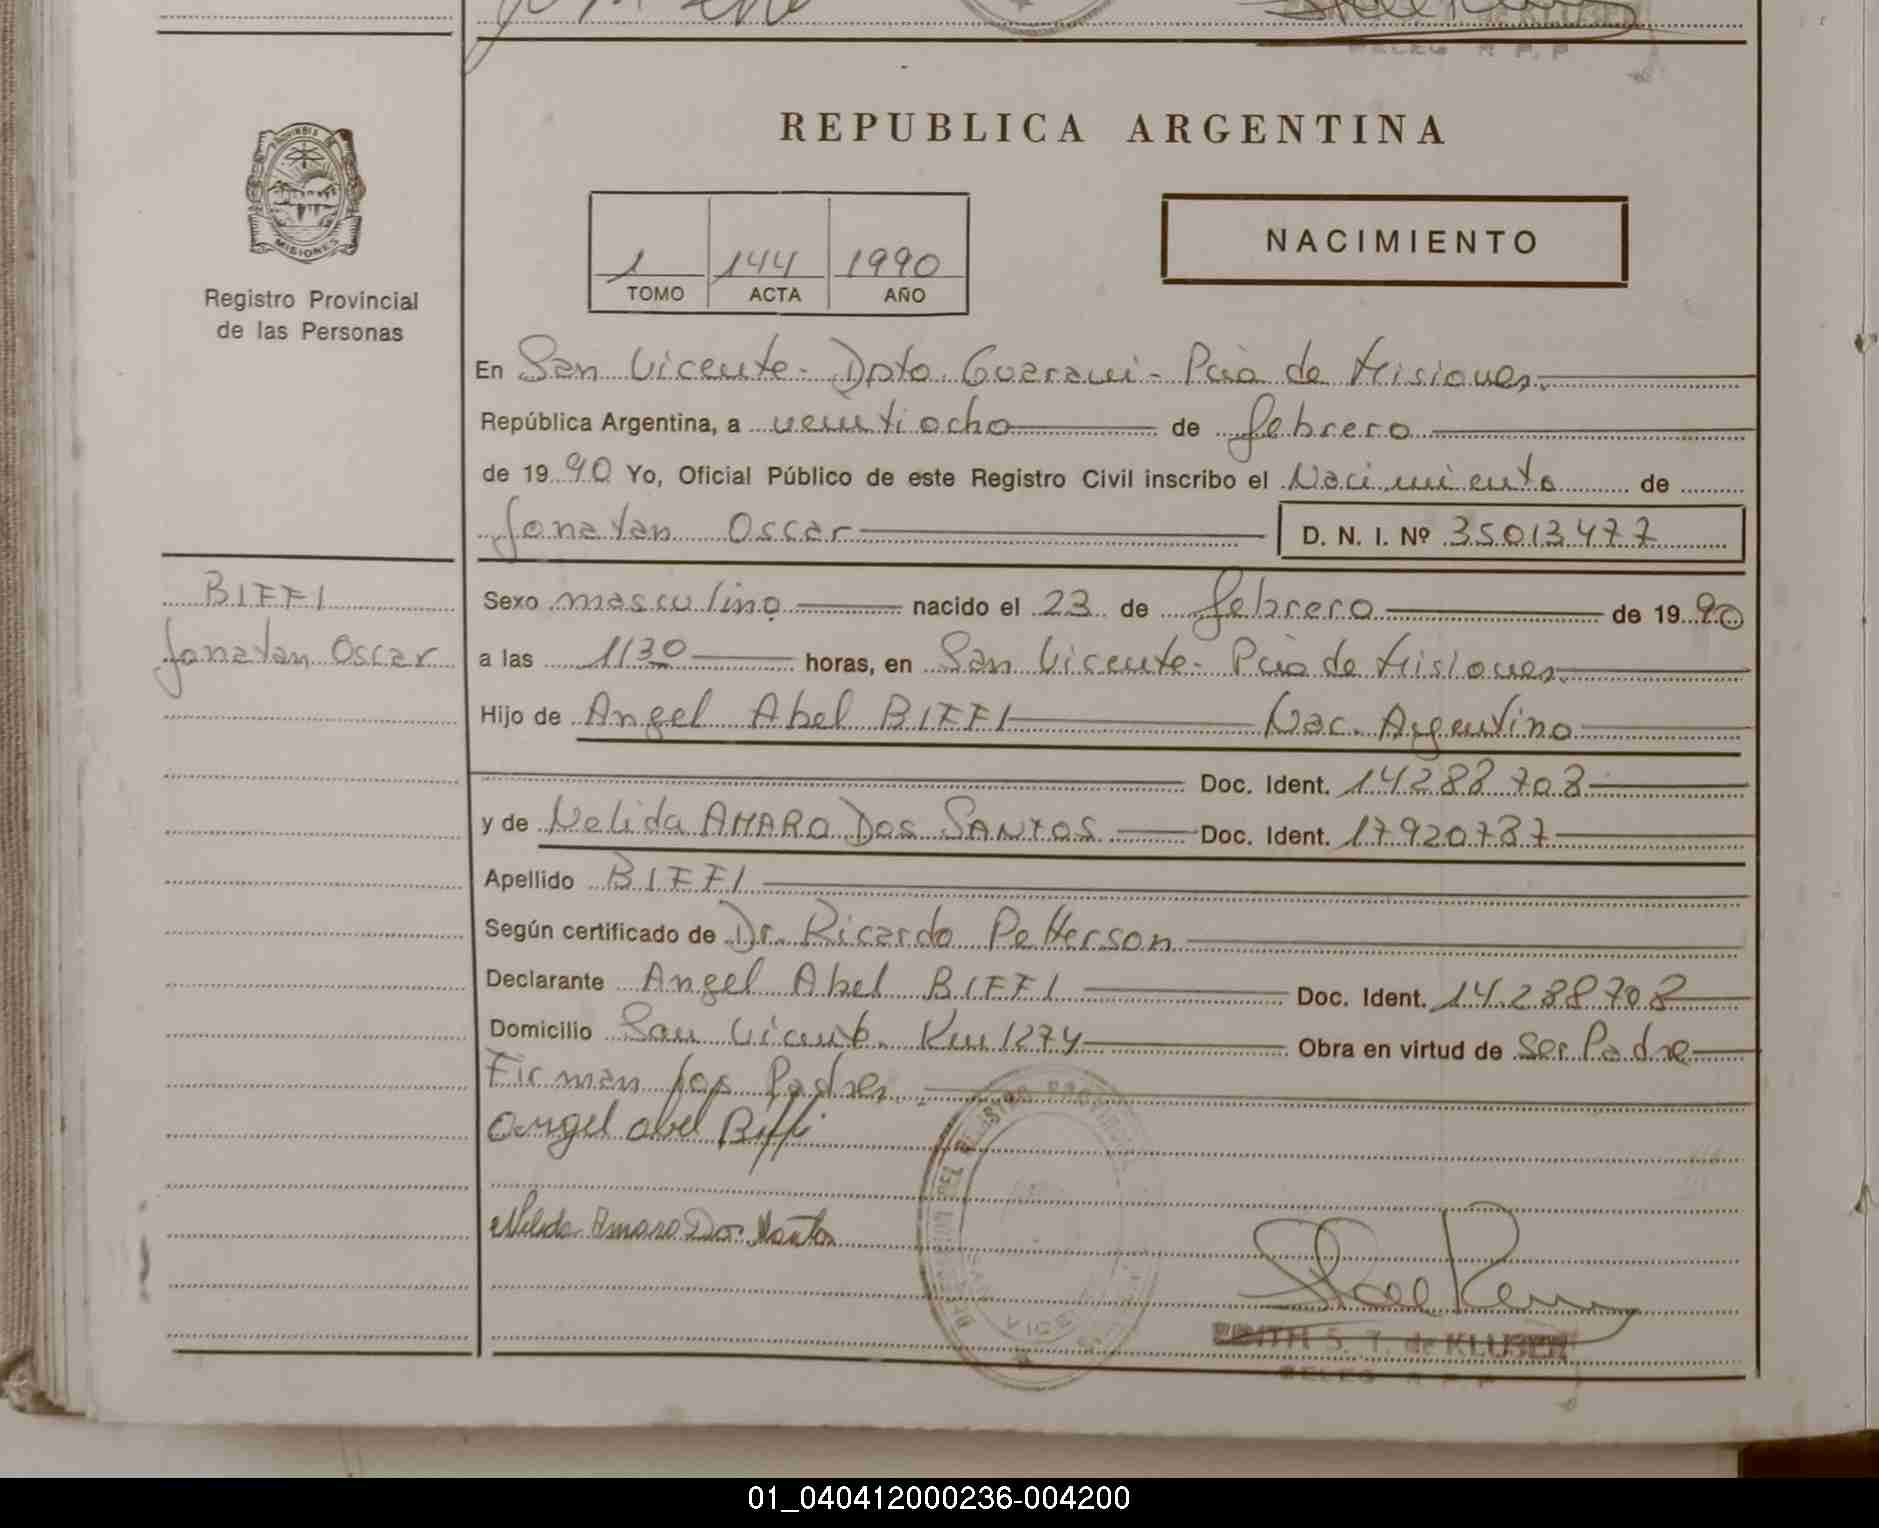 REPUBLICA ARGENTINA
MISIONES
Registro Provincial
de las Personas
1 144 1990
TOMO ACTA AÑO
NACIMIENTO
En San Vicente - Dpto. Guarani - Pcia de Misiones.
República Argentina, a veintiocho de febrero
de 19 90 Yo, Oficial Público de este Registro Civil inscribo el Nacimiento de
Jonatan Oscar D. N. I. Nº 35013477
BIFFI
Jonatan Oscar
Sexo masculino nacido el 23 de febrero de 19 90
a las 1130 horas, en San Vicente - Pcia de Misiones
Hijo de Angel Abel BIFFI Nac. Argentino
Doc. Ident. 14288708
y de Nelida AMARO Dos SANTOS Doc. Ident. 17920737
Apellido BIFFI
Según certificado de Dr. Ricardo Petterson
Declarante Angel Abel BIFFI Doc. Ident. 14.288708
Domicilio San Vicente Km 1274 Obra en virtud de Ser Padre
Firman los Padres.
Angel abel Biffi
Nelida Amaro Dos Santos
EDITH S. T. de KLUSEN
DELEG R P. P
01_040412000236-004200